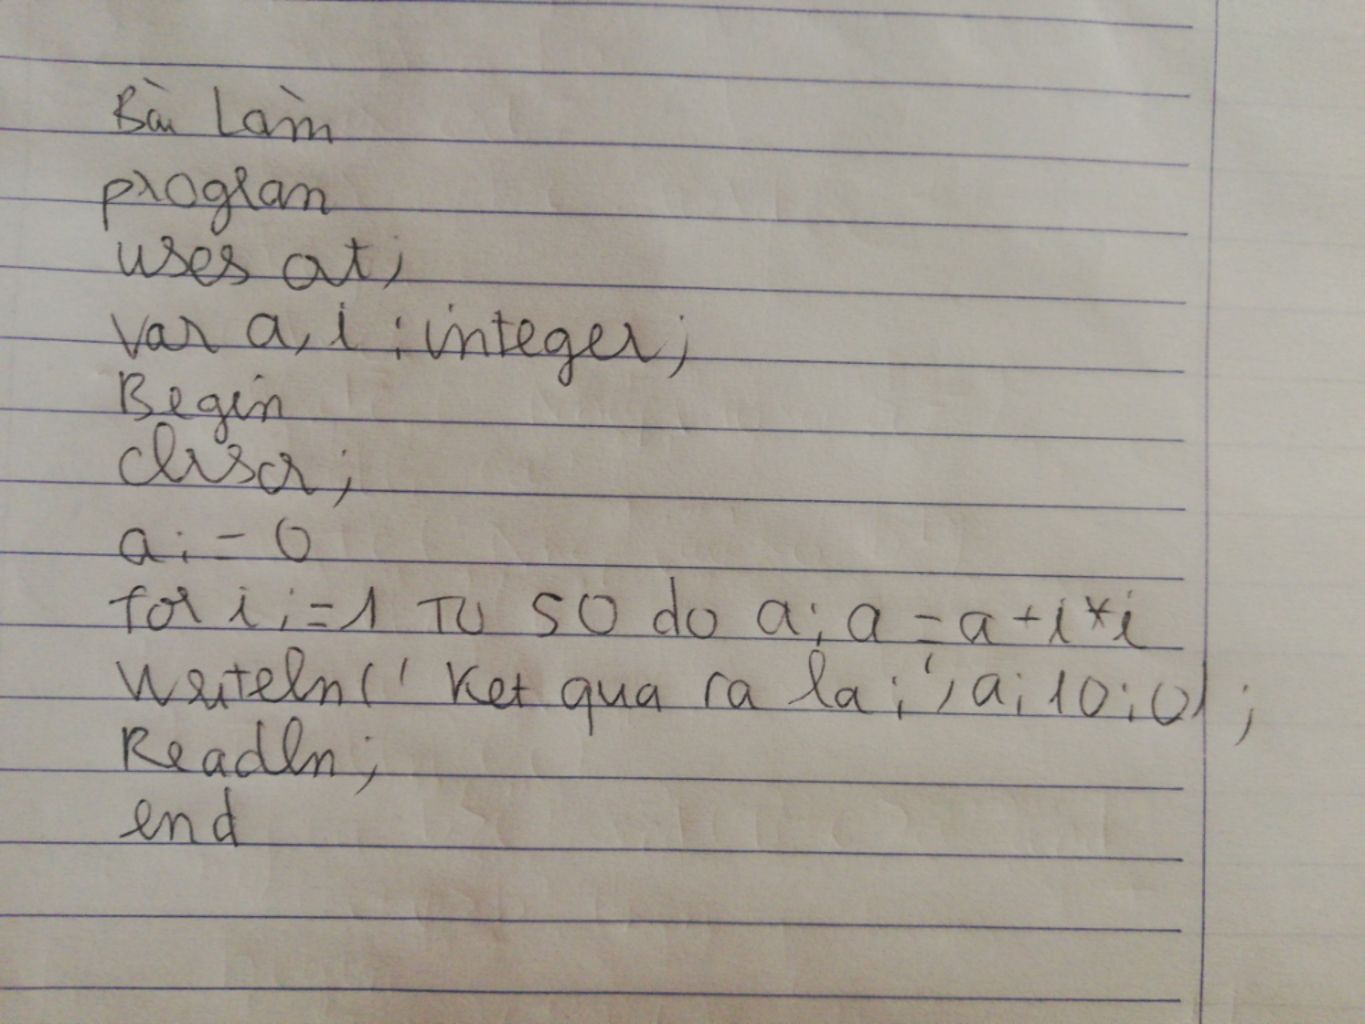 Bài Làm
progran
uses crt;
var a, i : integer;
Begin
clrscr;
a := 0
for i := 1 TO 50 do a; a = a + i*i
Writeln(' Ket qua ra la : ', a : 10 : 0) ;
Readln;
end